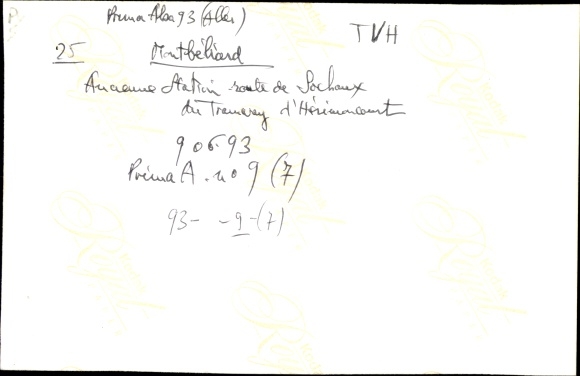 Prima Alea 93 (Aller)
TVH
25
Montbéliard
Ancienne Station route de Sochaux
du Tramway d'Hérimoncourt
9 06.93
Prima A. no 9 (7)
93- - 9-(7)